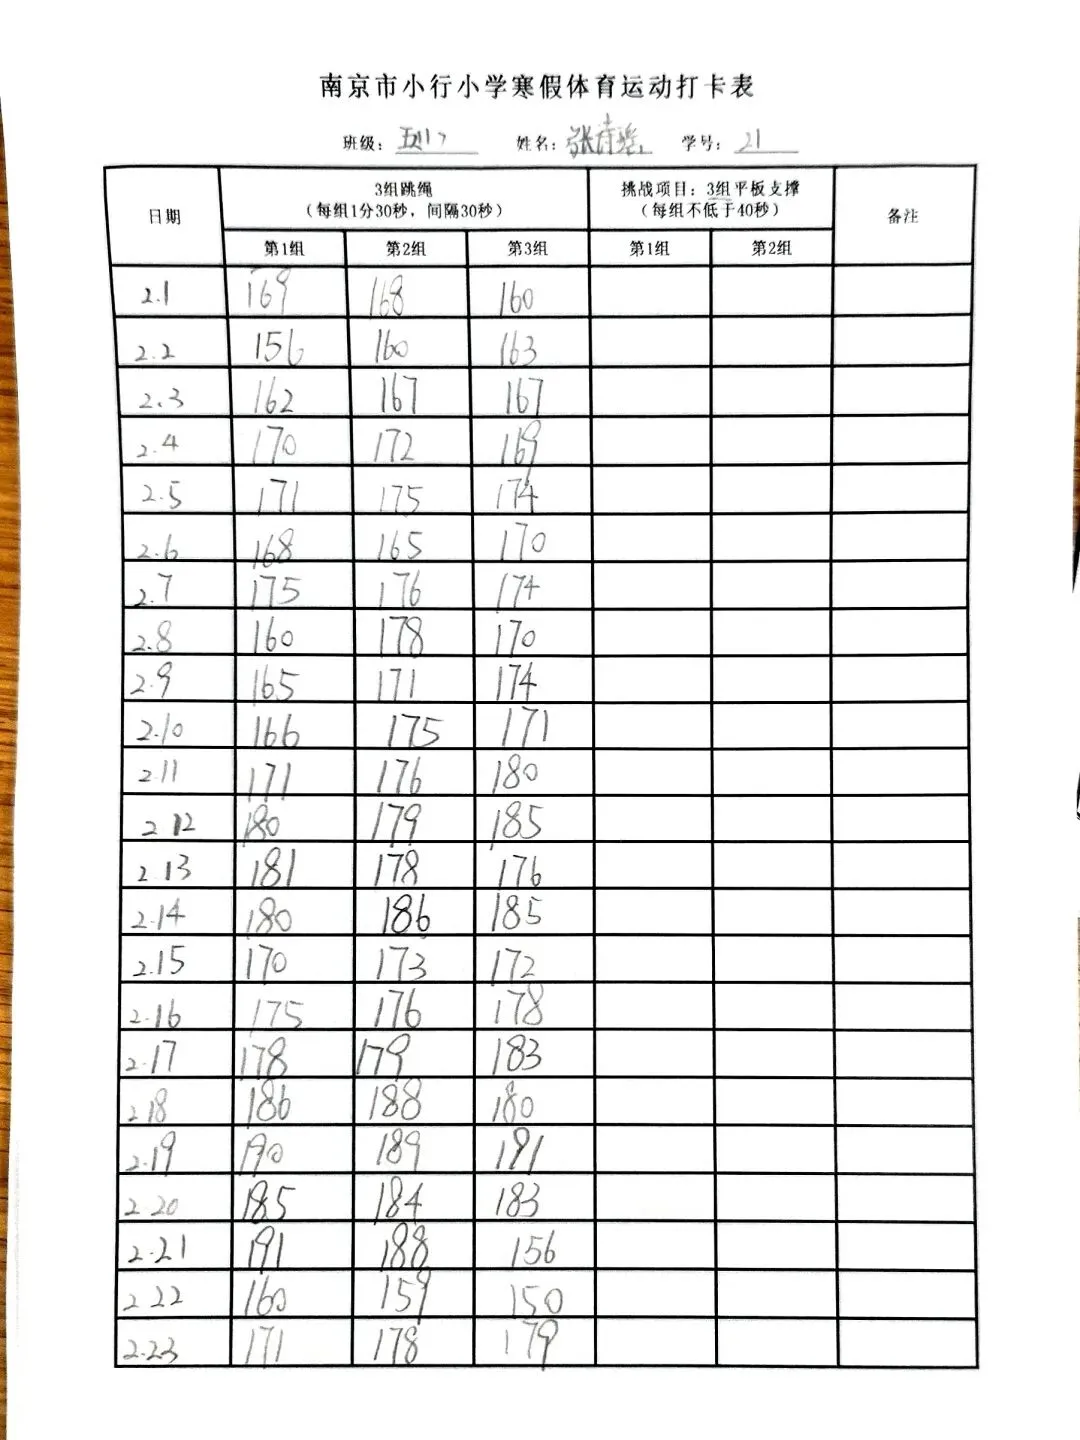 南京市小行小学寒假体育运动打卡表
班级： 姓名：张 学号：21
日期 3组跳绳 （每组1分30秒，间隔30秒） 挑战项目：3组平板支撑 （每组不低于40秒） 备注
第1组 第2组 第3组 第1组 第2组
2.1 169 168 160
2.2 156 160 163
2.3 162 167 167
2.4 170 172 169
2.5 171 175 174
2.6 168 165 170
2.7 175 176 174
2.8 160 178 170
2.9 165 171 174
2.10 166 175 171
2.11 171 176 180
2.12 180 179 185
2.13 181 178 176
2.14 180 186 185
2.15 170 173 172
2.16 175 176 178
2.17 178 179 183
2.18 186 188 180
2.19 190 189 191
2.20 185 184 183
2.21 191 188 156
2.22 160 159 150
2.23 171 178 179